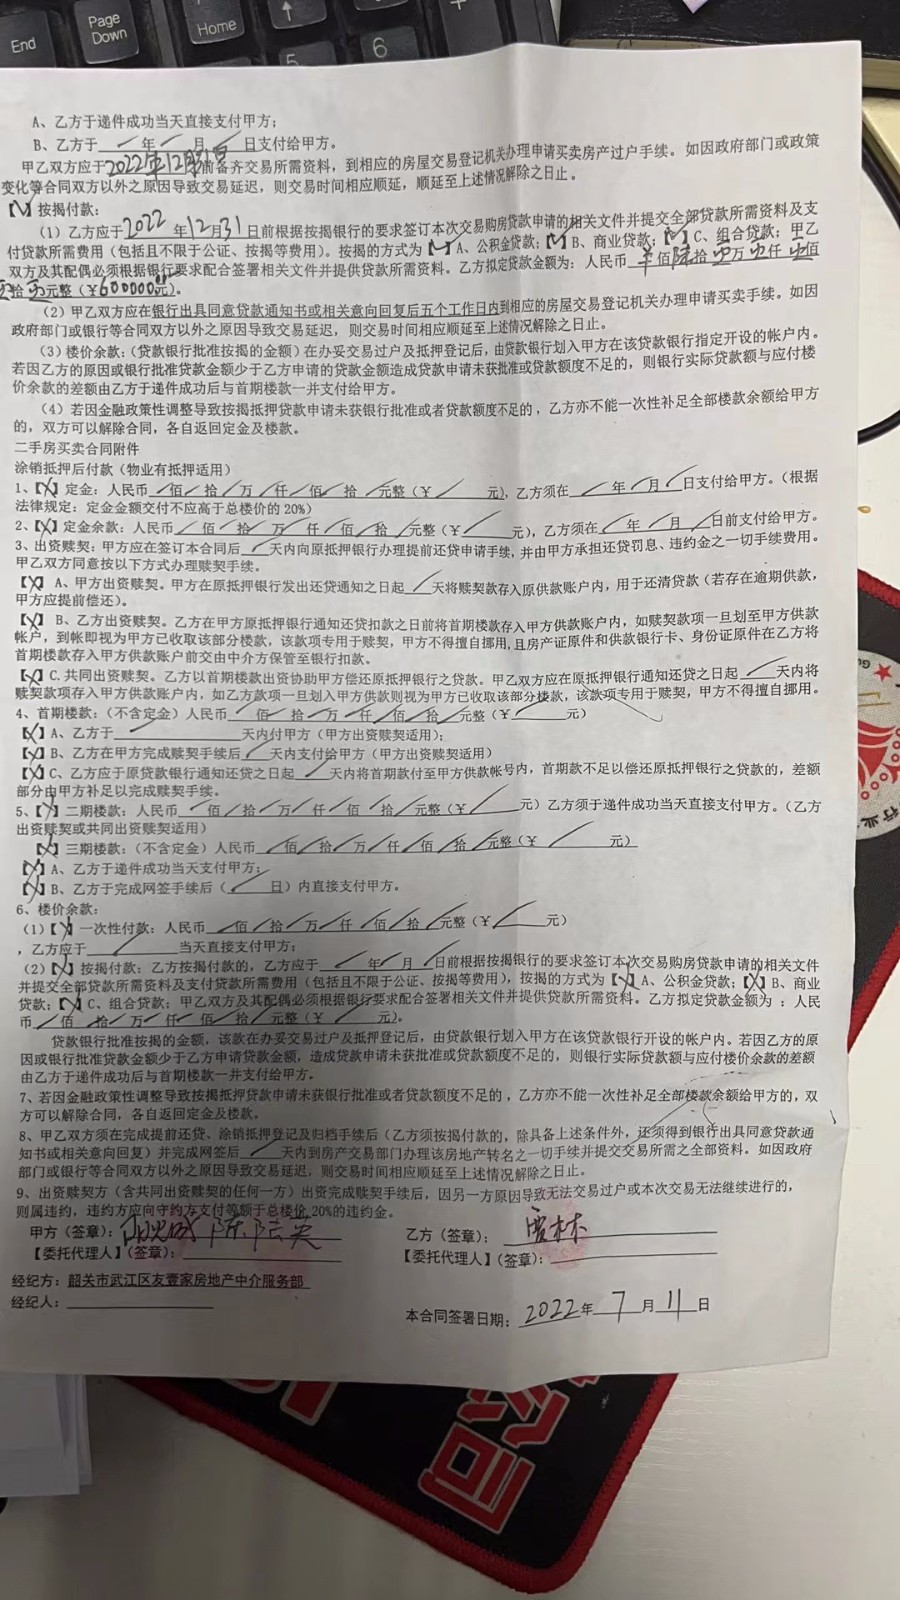 End
Page Down
Home
5
6
A、乙方于递件成功当天直接支付甲方；
B、乙方于 年 月 日支付给甲方。
甲乙双方应于2022年12月31日前备齐交易所需资料，到相应的房屋交易登记机关办理申请买卖房产过户手续。如因政府部门或政策
变化等合同双方以外之原因导致交易延迟，则交易时间相应顺延，顺延至上述情况解除之日止。
【√】按揭付款：
（1）乙方应于2022年12月31日前根据按揭银行的要求签订本次交易购房贷款申请的相关文件并提交全部贷款所需资料及支
付贷款所需费用（包括且不限于公证、按揭等费用）。按揭的方式为【√】A、公积金贷款；【√】B、商业贷款；【√】C、组合贷款；甲乙
双方及其配偶必须根据银行要求配合签署相关文件并提供贷款所需资料。乙方拟定贷款金额为：人民币 佰陆拾 万 仟 佰
拾 元整（￥600000元）。
（2）甲乙双方应在银行出具同意贷款通知书或相关意向回复后五个工作日内到相应的房屋交易登记机关办理申请买卖手续。如因
政府部门或银行等合同双方以外之原因导致交易延迟，则交易时间相应顺延至上述情况解除之日止。
（3）楼价余款：（贷款银行批准按揭的金额）在办妥交易过户及抵押登记后，由贷款银行划入甲方在该贷款银行指定开设的帐户内。
若因乙方的原因或银行批准贷款金额少于乙方申请的贷款金额造成贷款申请未获批准或贷款额度不足的，则银行实际贷款额与应付楼
价余款的差额由乙方于递件成功后与首期楼款一并支付给甲方。
（4）若因金融政策性调整导致按揭抵押贷款申请未获银行批准或者贷款额度不足的，乙方亦不能一次性补足全部楼款余额给甲方
的，双方可以解除合同，各自返回定金及楼款。
二手房买卖合同附件
涂销抵押后付款（物业有抵押适用）
1、【X】定金：人民币 佰 拾 万 仟 佰 拾 元整（￥ 元），乙方须在 年 月 日支付给甲方。（根据
法律规定：定金金额交付不应高于总楼价的20%）
2、【X】定金余款：人民币 佰 拾 万 仟 佰 拾 元整（￥ 元），乙方须在 年 月 日前支付给甲方。
3、出资赎契：甲方应在签订本合同后 天内向原抵押银行办理提前还贷申请手续，并由甲方承担还贷罚息、违约金之一切手续费用。
甲乙双方同意按以下方式办理赎契手续。
【X】A、甲方出资赎契。甲方在原抵押银行发出还贷通知之日起 天将赎契款存入原供款账户内，用于还清贷款（若存在逾期供款，
甲方应提前偿还）。
【X】B、乙方出资赎契。乙方在甲方原抵押银行通知还贷扣款之日前将首期楼款存入甲方供款账户内，如赎契款项一旦划至甲方供款
帐户，到帐即视为甲方已收取该部分楼款，该款项专用于赎契，甲方不得擅自挪用，且房产证原件和供款银行卡、身份证原件在乙方将
首期楼款存入甲方供款账户前交由中介方保管至银行扣款。
【X】C.共同出资赎契。乙方以首期楼款出资协助甲方偿还原抵押银行之贷款。甲乙双方应在原抵押银行通知还贷之日起 天内将
赎契款项存入甲方供款账户内，如乙方款项一旦划入甲方供款则视为甲方已收取该部分楼款，该款项专用于赎契，甲方不得擅自挪用。
4、首期楼款：（不含定金）人民币 佰 拾 万 仟 佰 拾 元整（￥ 元）
【X】A、乙方于 天内付甲方（甲方出资赎契适用）；
【X】B、乙方在甲方完成赎契手续后 天内支付给甲方（甲方出资赎契适用）
【X】C、乙方应于原贷款银行通知还贷之日起 天内将首期款付至甲方供款帐号内，首期款不足以偿还原抵押银行之贷款的，差额
部分由甲方补足以完成赎契手续。
5、【X】二期楼款：人民币 佰 拾 万 仟 佰 拾 元整（￥ 元）乙方须于递件成功当天直接支付甲方。（乙方
出资赎契或共同出资赎契适用）
【X】三期楼款：（不含定金）人民币 佰 拾 万 仟 佰 拾 元整（￥ 元）
【X】A、乙方于递件成功当天支付甲方；
【X】B、乙方于完成网签手续后（ 日）内直接支付甲方。
6、楼价余款：
（1）【X】一次性付款：人民币 佰 拾 万 仟 佰 拾 元整（￥ 元）
，乙方应于 当天直接支付甲方；
（2）【X】按揭付款：乙方按揭付款的，乙方应于 年 月 日前根据按揭银行的要求签订本次交易购房贷款申请的相关文件
并提交全部贷款所需资料及支付贷款所需费用（包括且不限于公证、按揭等费用），按揭的方式为【X】A、公积金贷款；【X】B、商业
贷款；【X】C、组合贷款；甲乙双方及其配偶必须根据银行要求配合签署相关文件并提供贷款所需资料。乙方拟定贷款金额为：人民
币 佰 拾 万 仟 佰 拾 元整（￥ 元）。
贷款银行批准按揭的金额，该款在办妥交易过户及抵押登记后，由贷款银行划入甲方在该贷款银行开设的帐户内。若因乙方的原
因或银行批准贷款金额少于乙方申请贷款金额，造成贷款申请未获批准或贷款额度不足的，则银行实际贷款额与应付楼价余款的差额
由乙方于递件成功后与首期楼款一并支付给甲方。
7、若因金融政策性调整导致按揭抵押贷款申请未获银行批准或者贷款额度不足的，乙方亦不能一次性补足全部楼款余额给甲方的，双
方可以解除合同，各自返回定金及楼款。
8、甲乙双方须在完成提前还贷、涂销抵押登记及归档手续后（乙方须按揭付款的，除具备上述条件外，还须得到银行出具同意贷款通
知书或相关意向回复）并完成网签后 天内到房产交易部门办理该房地产转名之一切手续并提交交易所需之全部资料。如因政府
部门或银行等合同双方以外之原因导致交易延迟，则交易时间相应顺延至上述情况解除之日止。
9、出资赎契方（含共同出资赎契的任何一方）出资完成赎契手续后，因另一方原因导致无法交易过户或本次交易无法继续进行的，
则属违约，违约方应向守约方支付等额于总楼价20%的违约金。
甲方（签章）： 陈陆英 乙方（签章）： 林
【委托代理人】（签章）： 【委托代理人】（签章）：
经纪方：韶关市武江区友壹家房地产中介服务部
经纪人：
本合同签署日期：2022年7月11日
公司